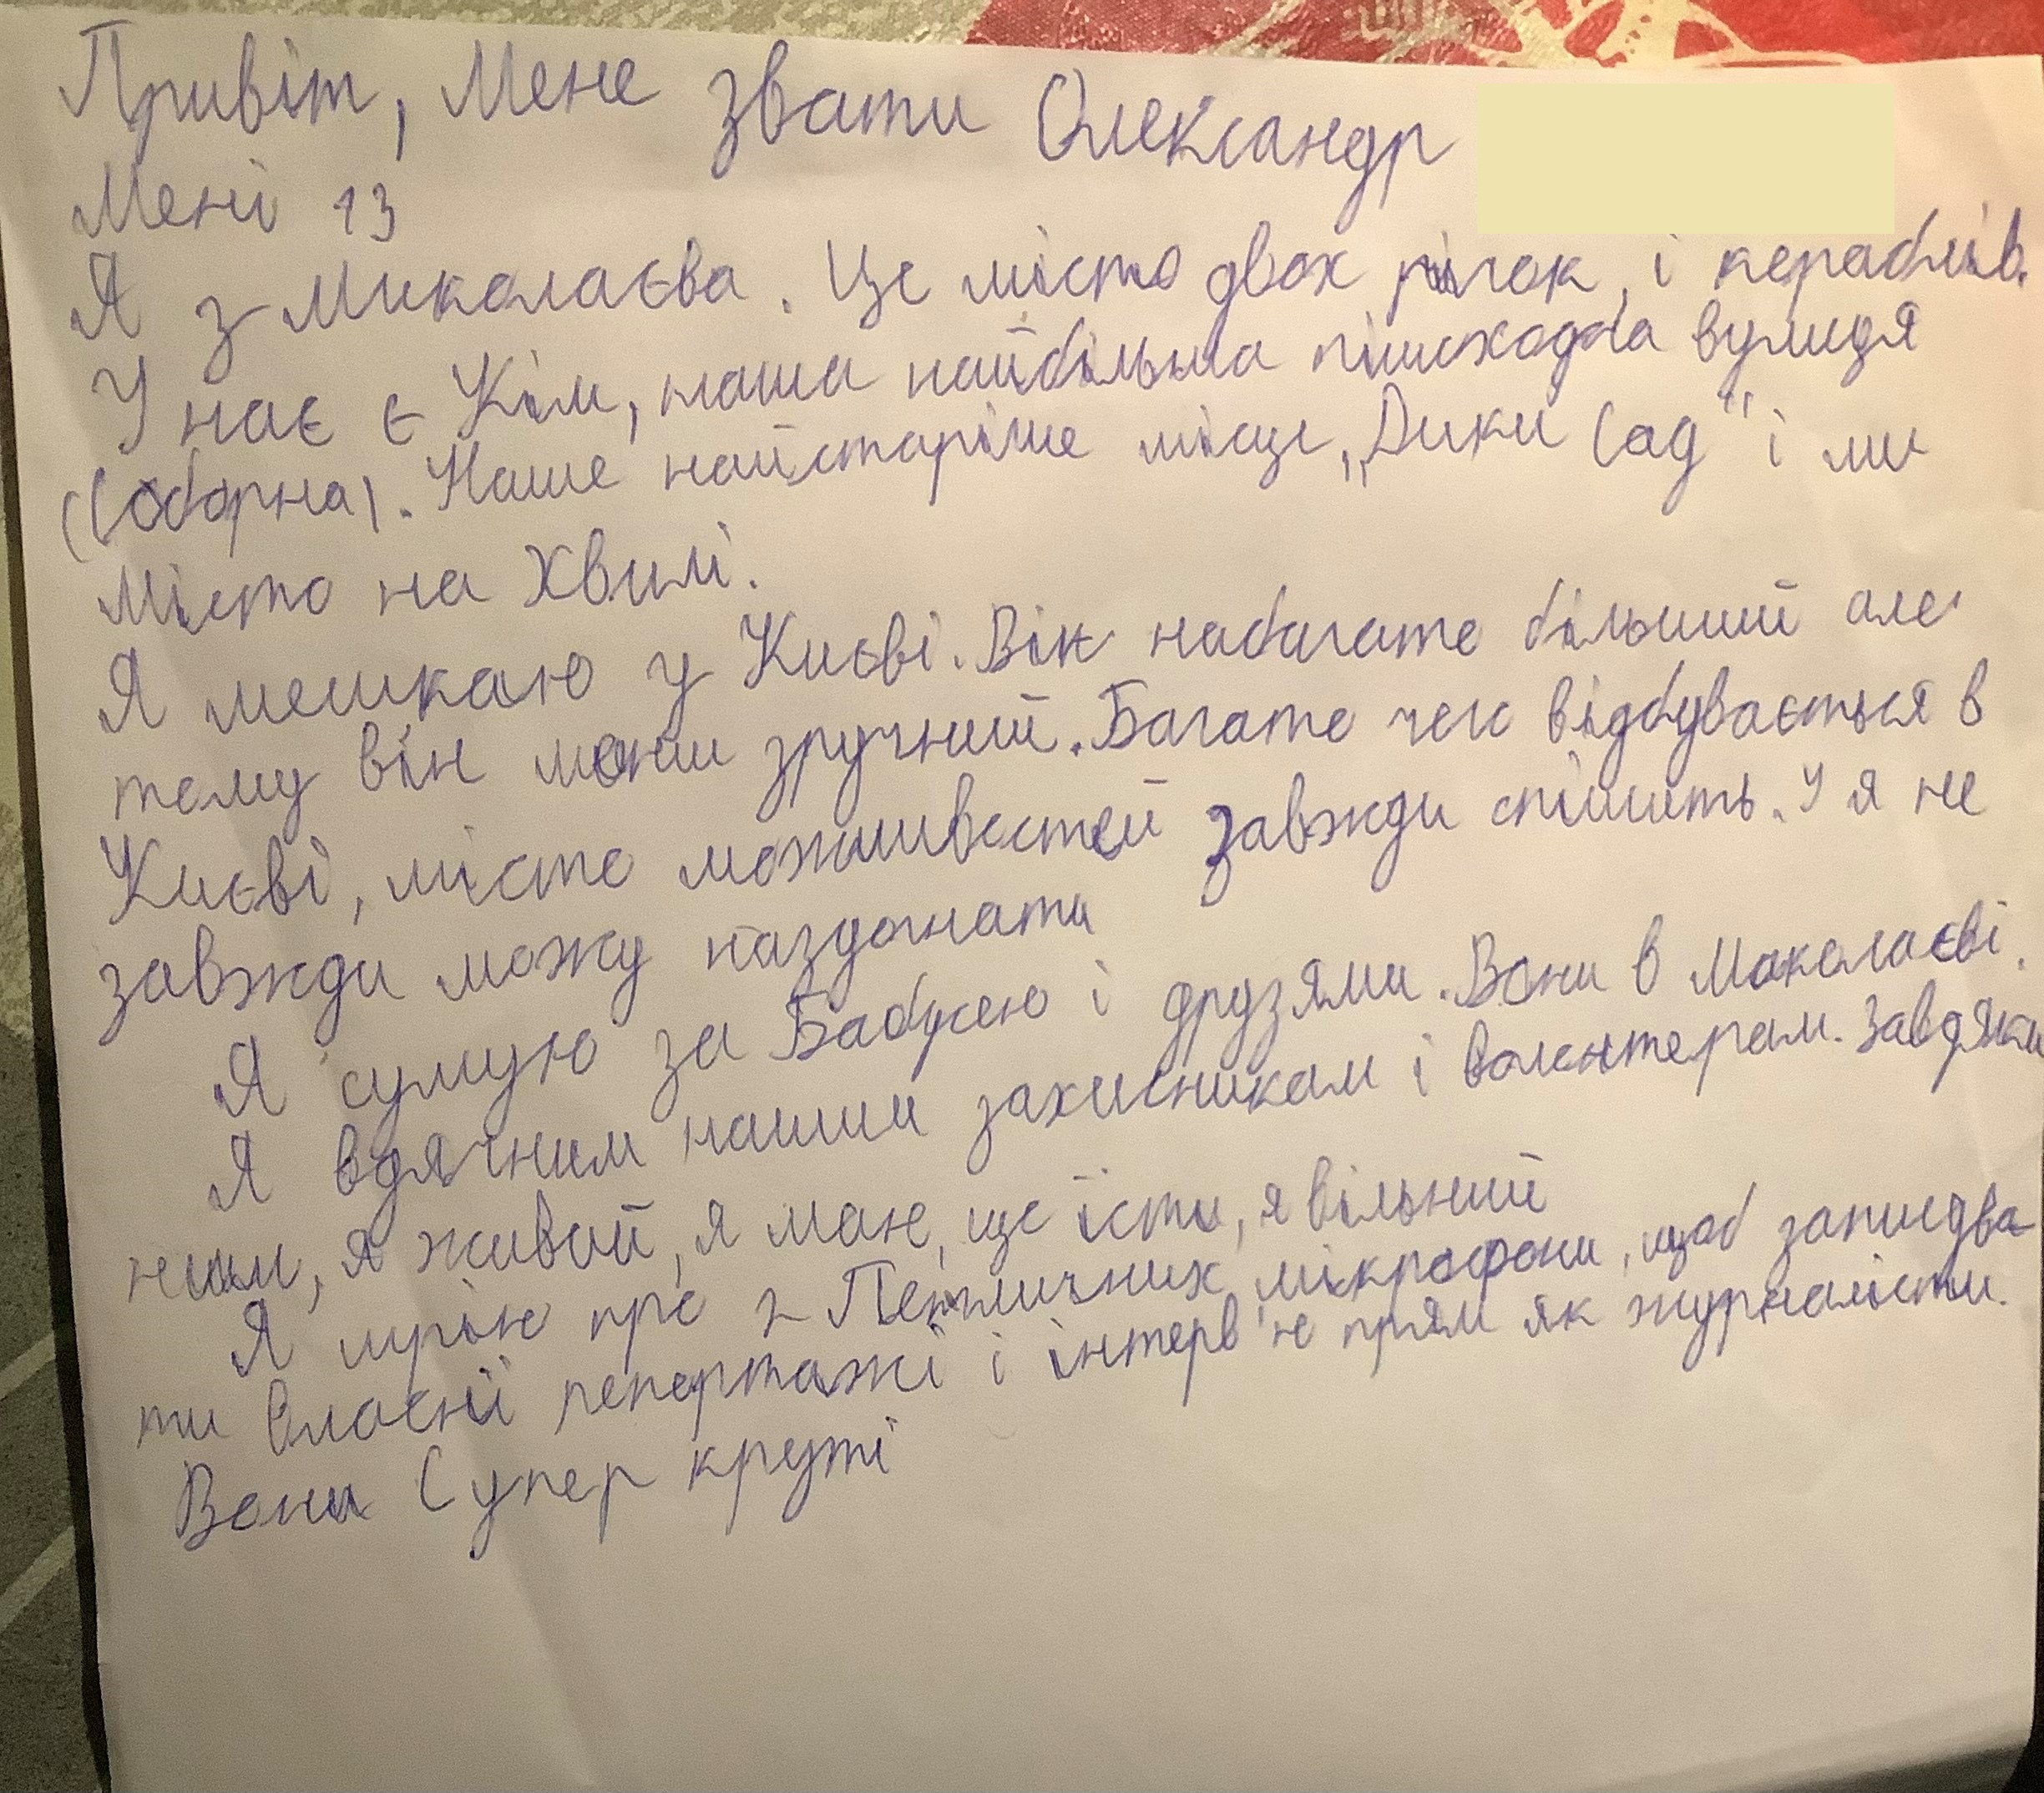 Привіт, Мене звати Олександр
Мені 13
Я з Миколаєва. Це місто двох річок, і кораблів.
У нас є Кім, наша найбільша пішоходба вулиця
(Соборна). Наше найстаріше місце „Дики Сад“ і ми
місто на Хвилі.
Я мешкаю у Києві. Він набагато більший але
тому він менш зручний. Багато чего відбувається в
Києві, місто можливостей завжди спішить. І я не
завжди можу наздогнати
Я сумую за Бабусею і друзями. Вони в Миколаєві.
Я вдячним нашим захисникам і волонтерам. Завдяки
ним, я живой, я маю що їсти, я вільний
Я мрію про 2 Петличних мікрофони, щоб записува-
ти власнії репортажі і інтерв'ю прям як журналісти.
Вони Супер круті